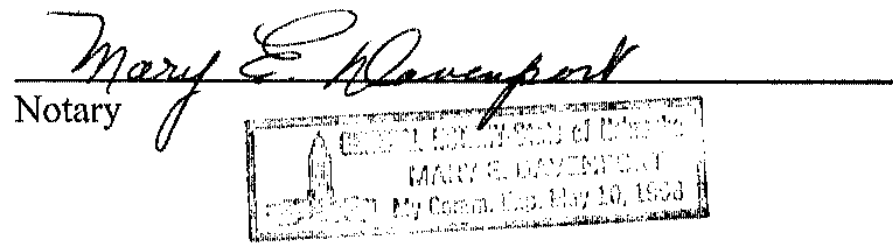 Mary E. Davenport
Notary
GENERAL NOTARY-State of Nebraska
MARY E. DAVENPORT
My Comm. Exp. May 10, 1998